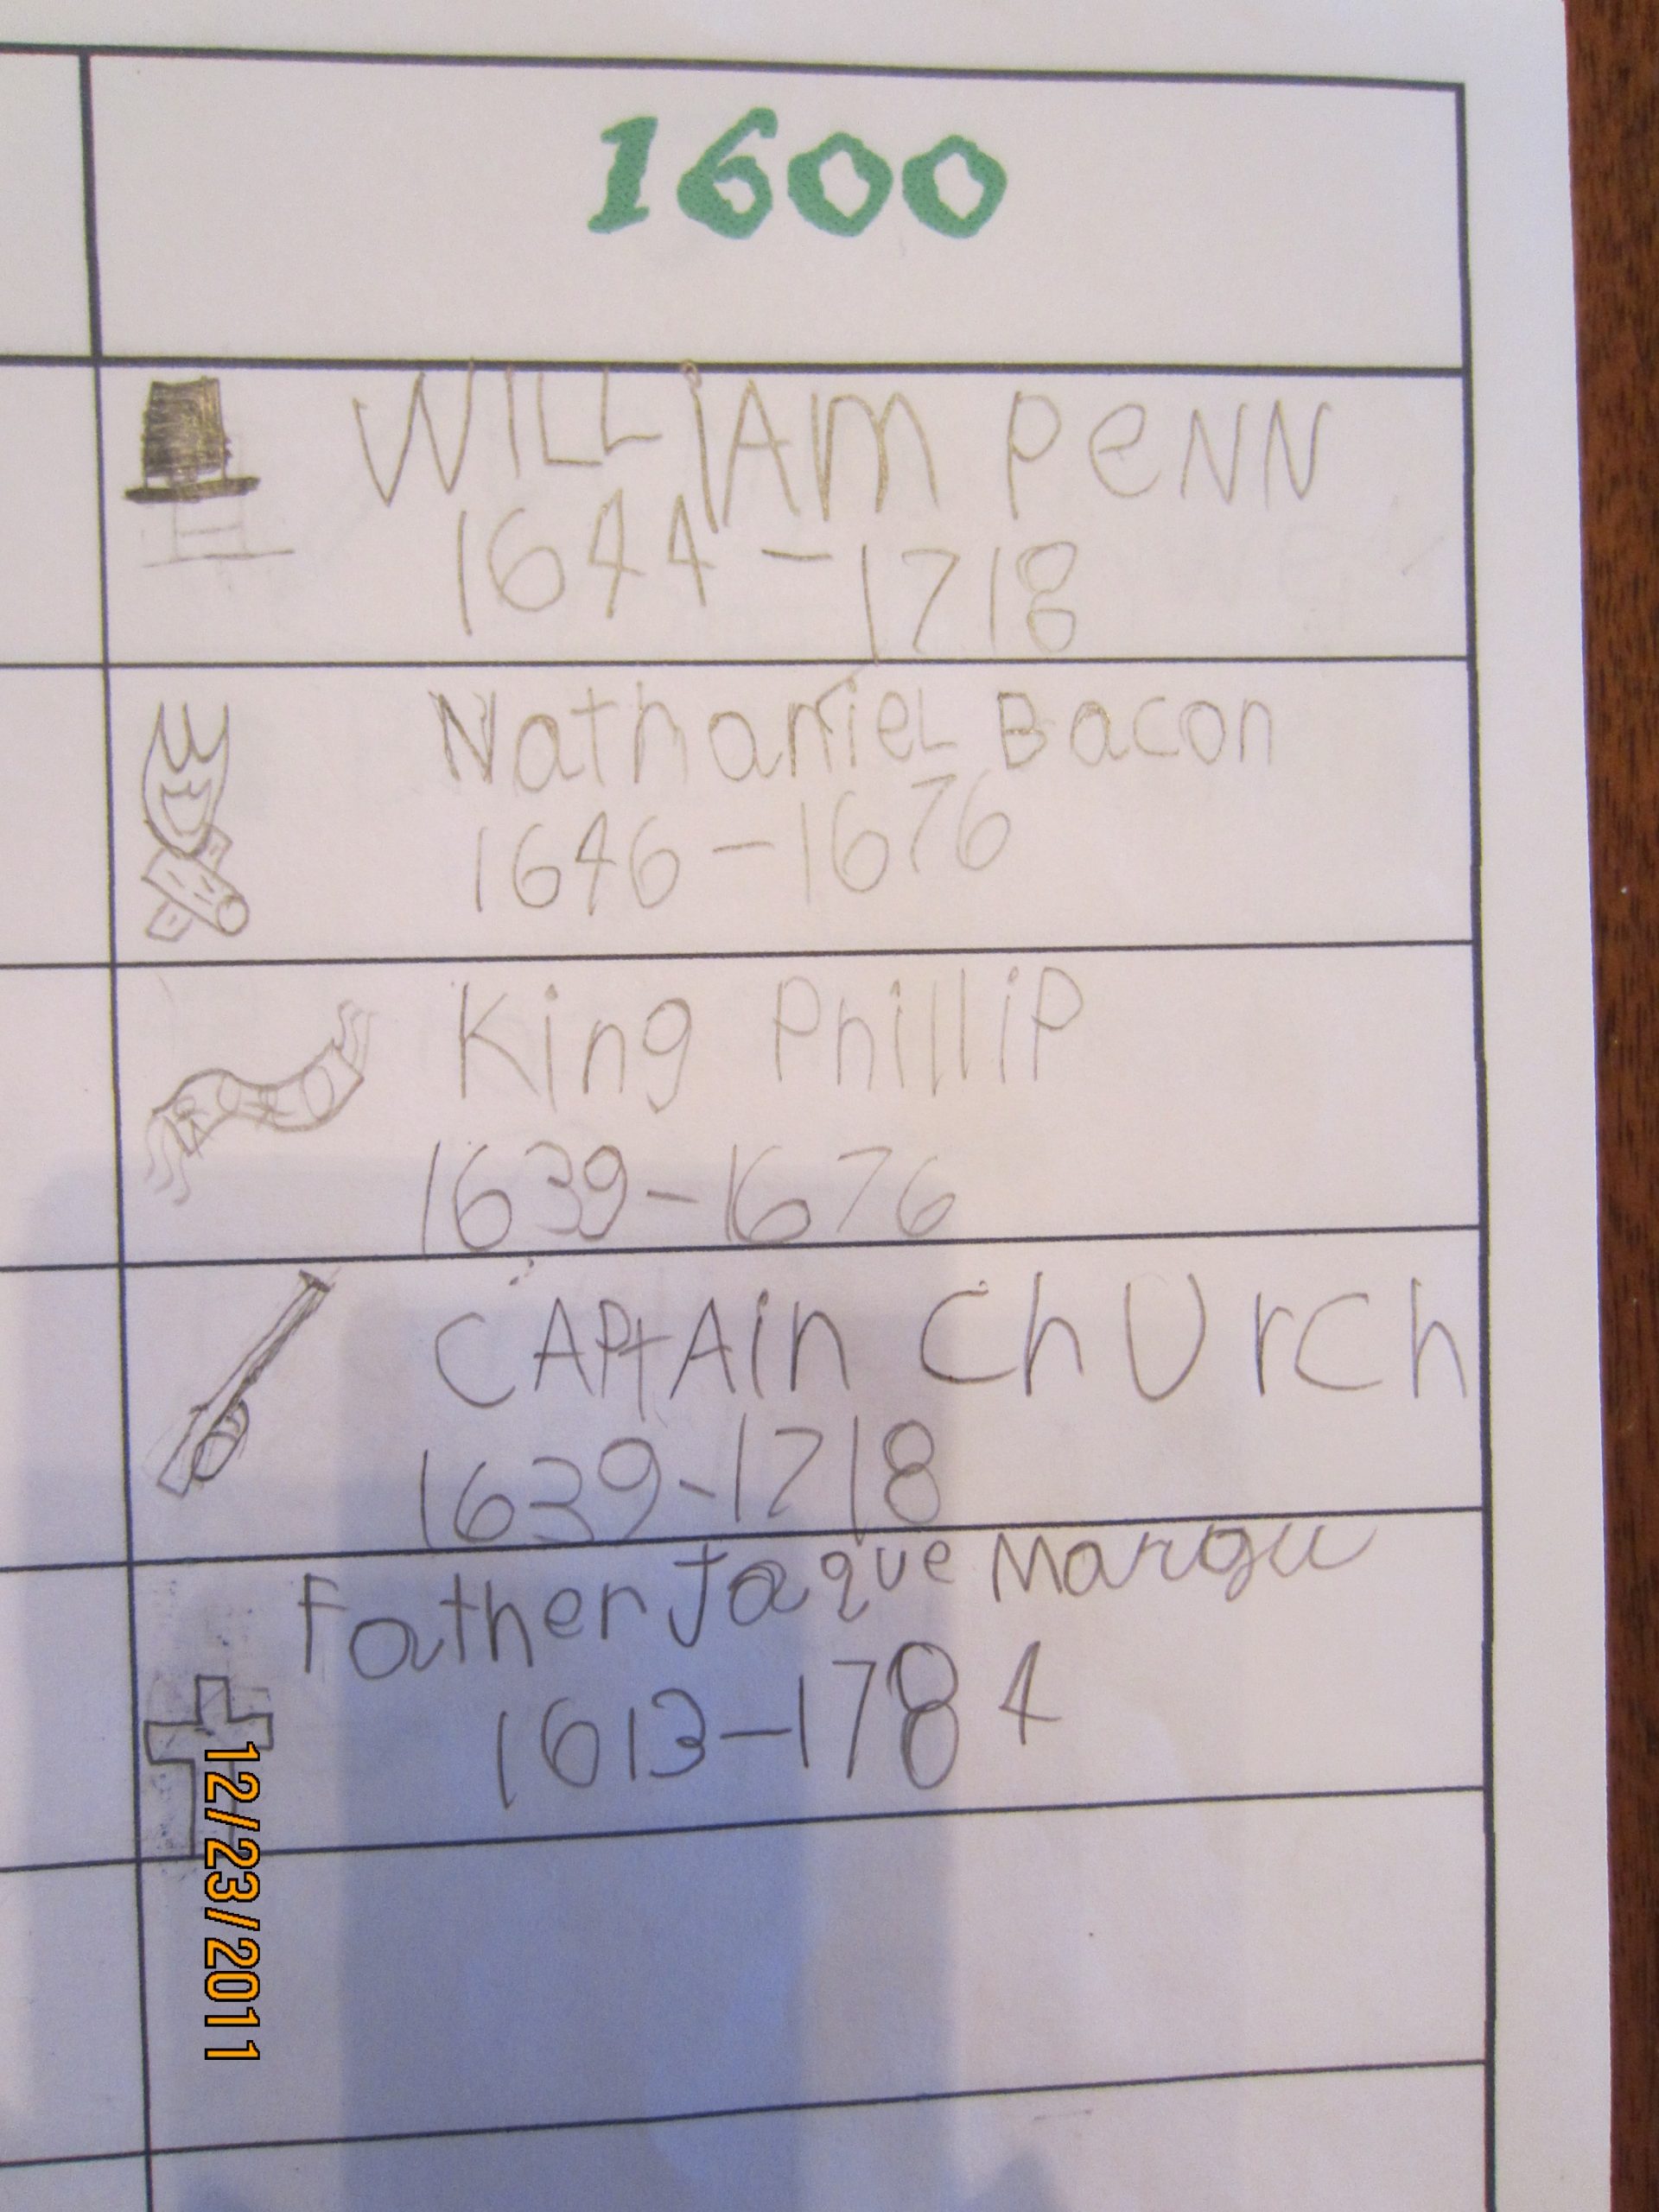 1600
WILLiAm PeNN
1644-1718
NathanieL Bacon
1646-1676
King PhilliP
1639-1676
CAPtAin ChUrCh
1639-1718
Father Jaque Marqu
1613-1784
12/23/2011